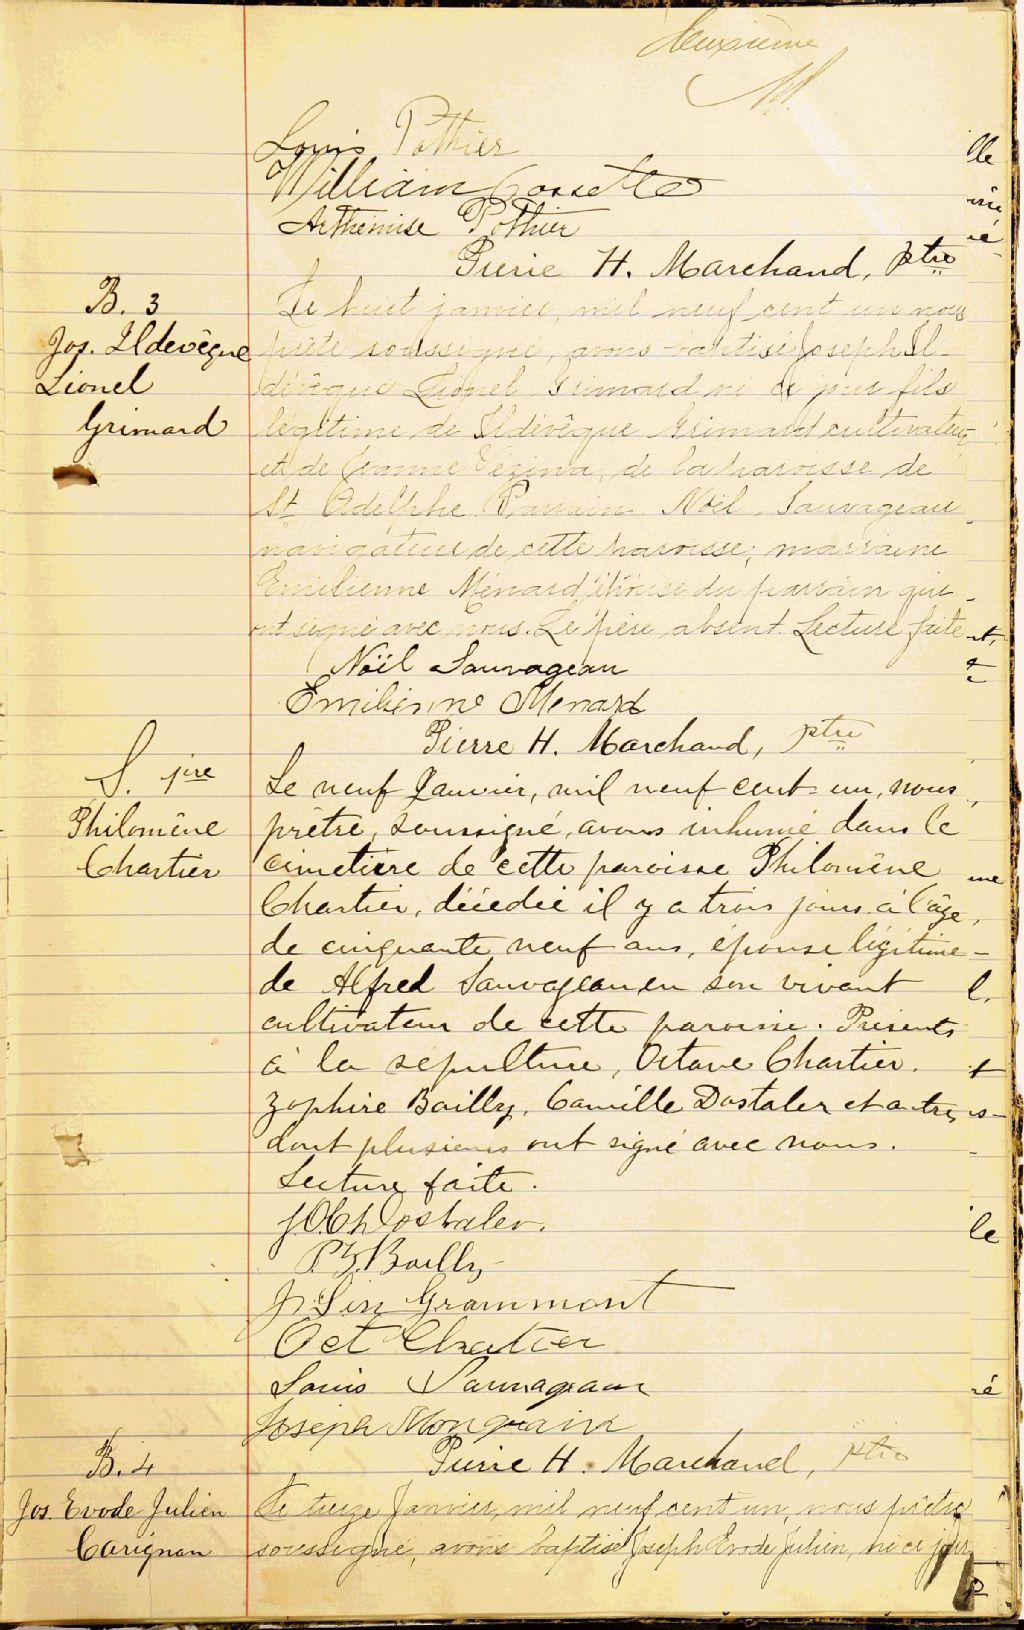 deuxième
Louis Pothier
William Cossette
Arthémise Pothier
Pierre H. Marchand, ptre
B. 3
Jos. Ildevêque
Lionel
Grimard
Le huit janvier, mil neuf cent un nous
prêtre soussigné, avons baptisé Joseph Il-
dévêque Lionel Grimard né ce jour fils
légitime de Ildévêque Grimard cultivateur
et de Jeanne Vezina, de la paroisse de
St Adelphe. Parrain Noël Sauvageau
navigateur de cette paroisse; marraine
Emilienne Ménard épouse du parrain qui
ont signé avec nous. Le père absent. Lecture faite
Noël Sauvageau
Emilienne Menard
Pierre H. Marchand, ptre
S. 1ere
Philomène
Chartier
Le neuf Janvier, mil neuf cent un, nous
prêtre, soussigné, avons inhumé dans le
cimetière de cette paroisse Philomène
Chartier, décédée il y a trois jours à l'âge
de cinquante neuf ans, épouse légitime
de Alfred Sauvageau en son vivant
cultivateur de cette paroisse. Présents
à la sépulture, Octave Chartier.
Zophire Bailly, Camille Dostaler et autres
dont plusieurs ont signé avec nous.
Lecture faite.
Dostaler.
P. Z. Bailly
Grammont
Oct Chartier
Louis Sauvageau
Joseph Mongrain
Pierre H. Marchand, ptre
B. 4
Jos. Evode Julien
Carignan
Le treize Janvier, mil neuf cent un, nous prêtre
soussigné, avons baptisé Joseph Evode Julien, né ce jour,